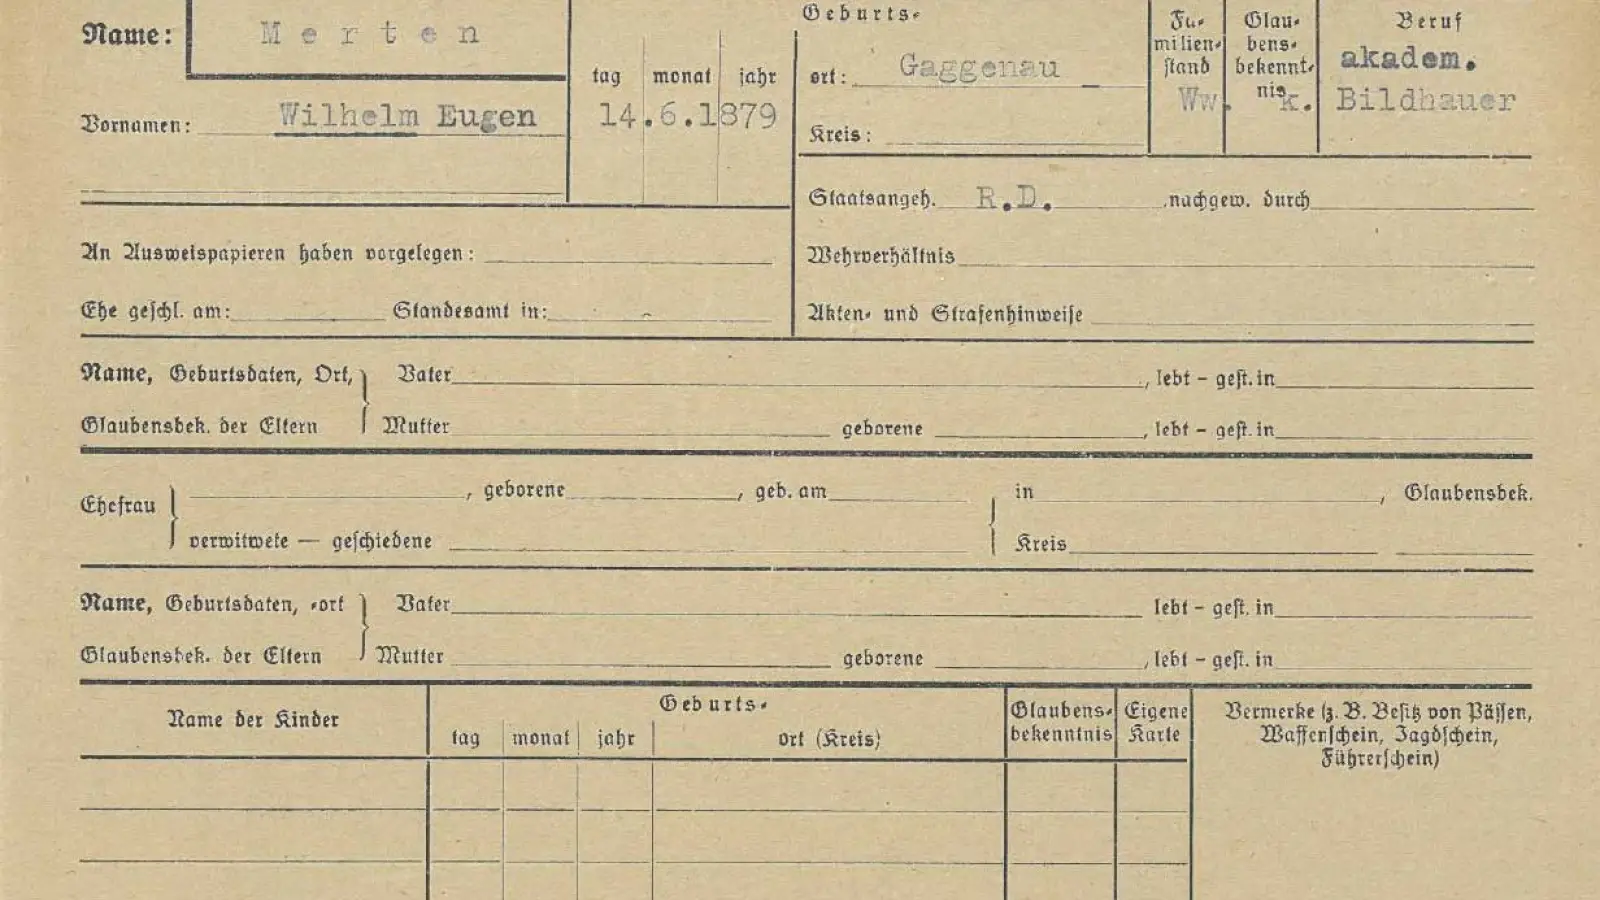 Name: Merten
Vornamen: Wilhelm Eugen
tag monat jahr
14.6.1879
Geburts-
ort: Gaggenau
Kreis:
Fa-
milien-
stand
Ww.
Glau-
bens-
bekennt-
nis
k.
Beruf
akadem.
Bildhauer
Staatsangeh. R.D. ,nachgew. durch
An Ausweispapieren haben vorgelegen:
Wehrverhältnis
Ehe geschl. am: Standesamt in:
Akten- und Strafenhinweise
Name, Geburtsdaten, Ort, } Vater , lebt – gest. in
Glaubensbek. der Eltern Mutter geborene , lebt – gest. in
Ehefrau { , geborene , geb. am { in , Glaubensbek.
verwitwete — geschiedene Kreis
Name, Geburtsdaten, -ort } Vater lebt – gest. in
Glaubensbek. der Eltern Mutter geborene , lebt – gest. in
Name der Kinder
Geburts-
tag monat jahr ort (Kreis)
Glaubens-
bekenntnis
Eigene
Karte
Vermerke (z. B. Besitz von Pässen,
Waffenschein, Jagdschein,
Führerschein)